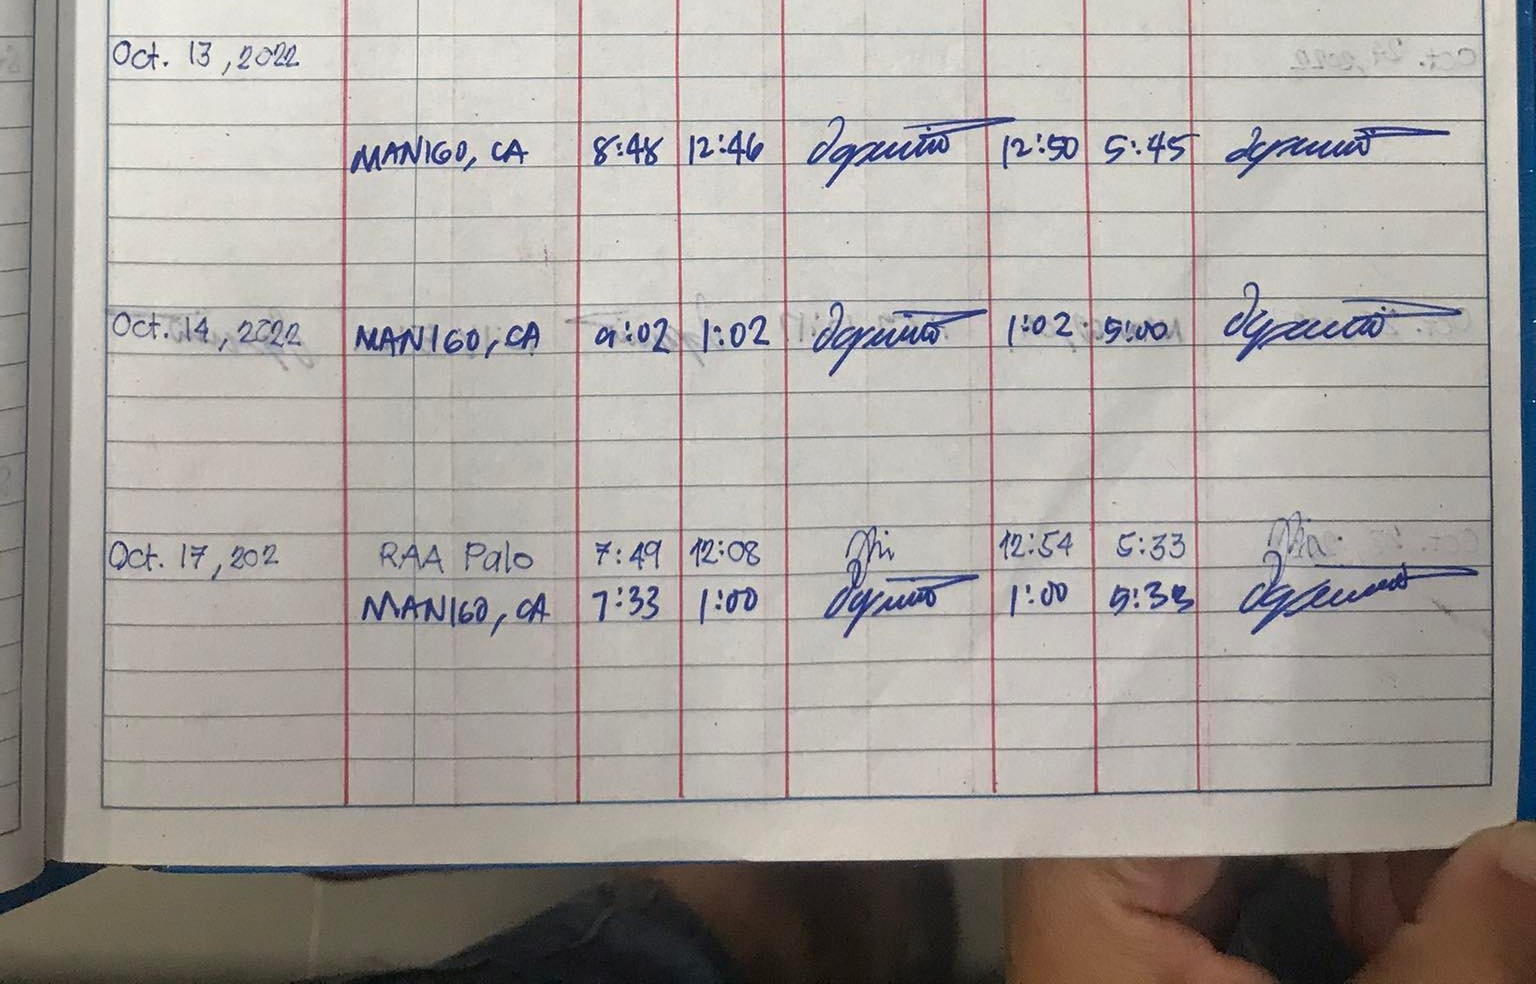 Oct. 13, 2022
MANIGO, CA 8:48 12:46 12:50 5:45
Oct. 14, 2022 MANIGO, CA 9:02 1:02 1:02 5:00
Oct. 17, 202 RAA Palo 7:49 12:08 12:54 5:33
MANIGO, CA 7:33 1:00 1:00 5:33